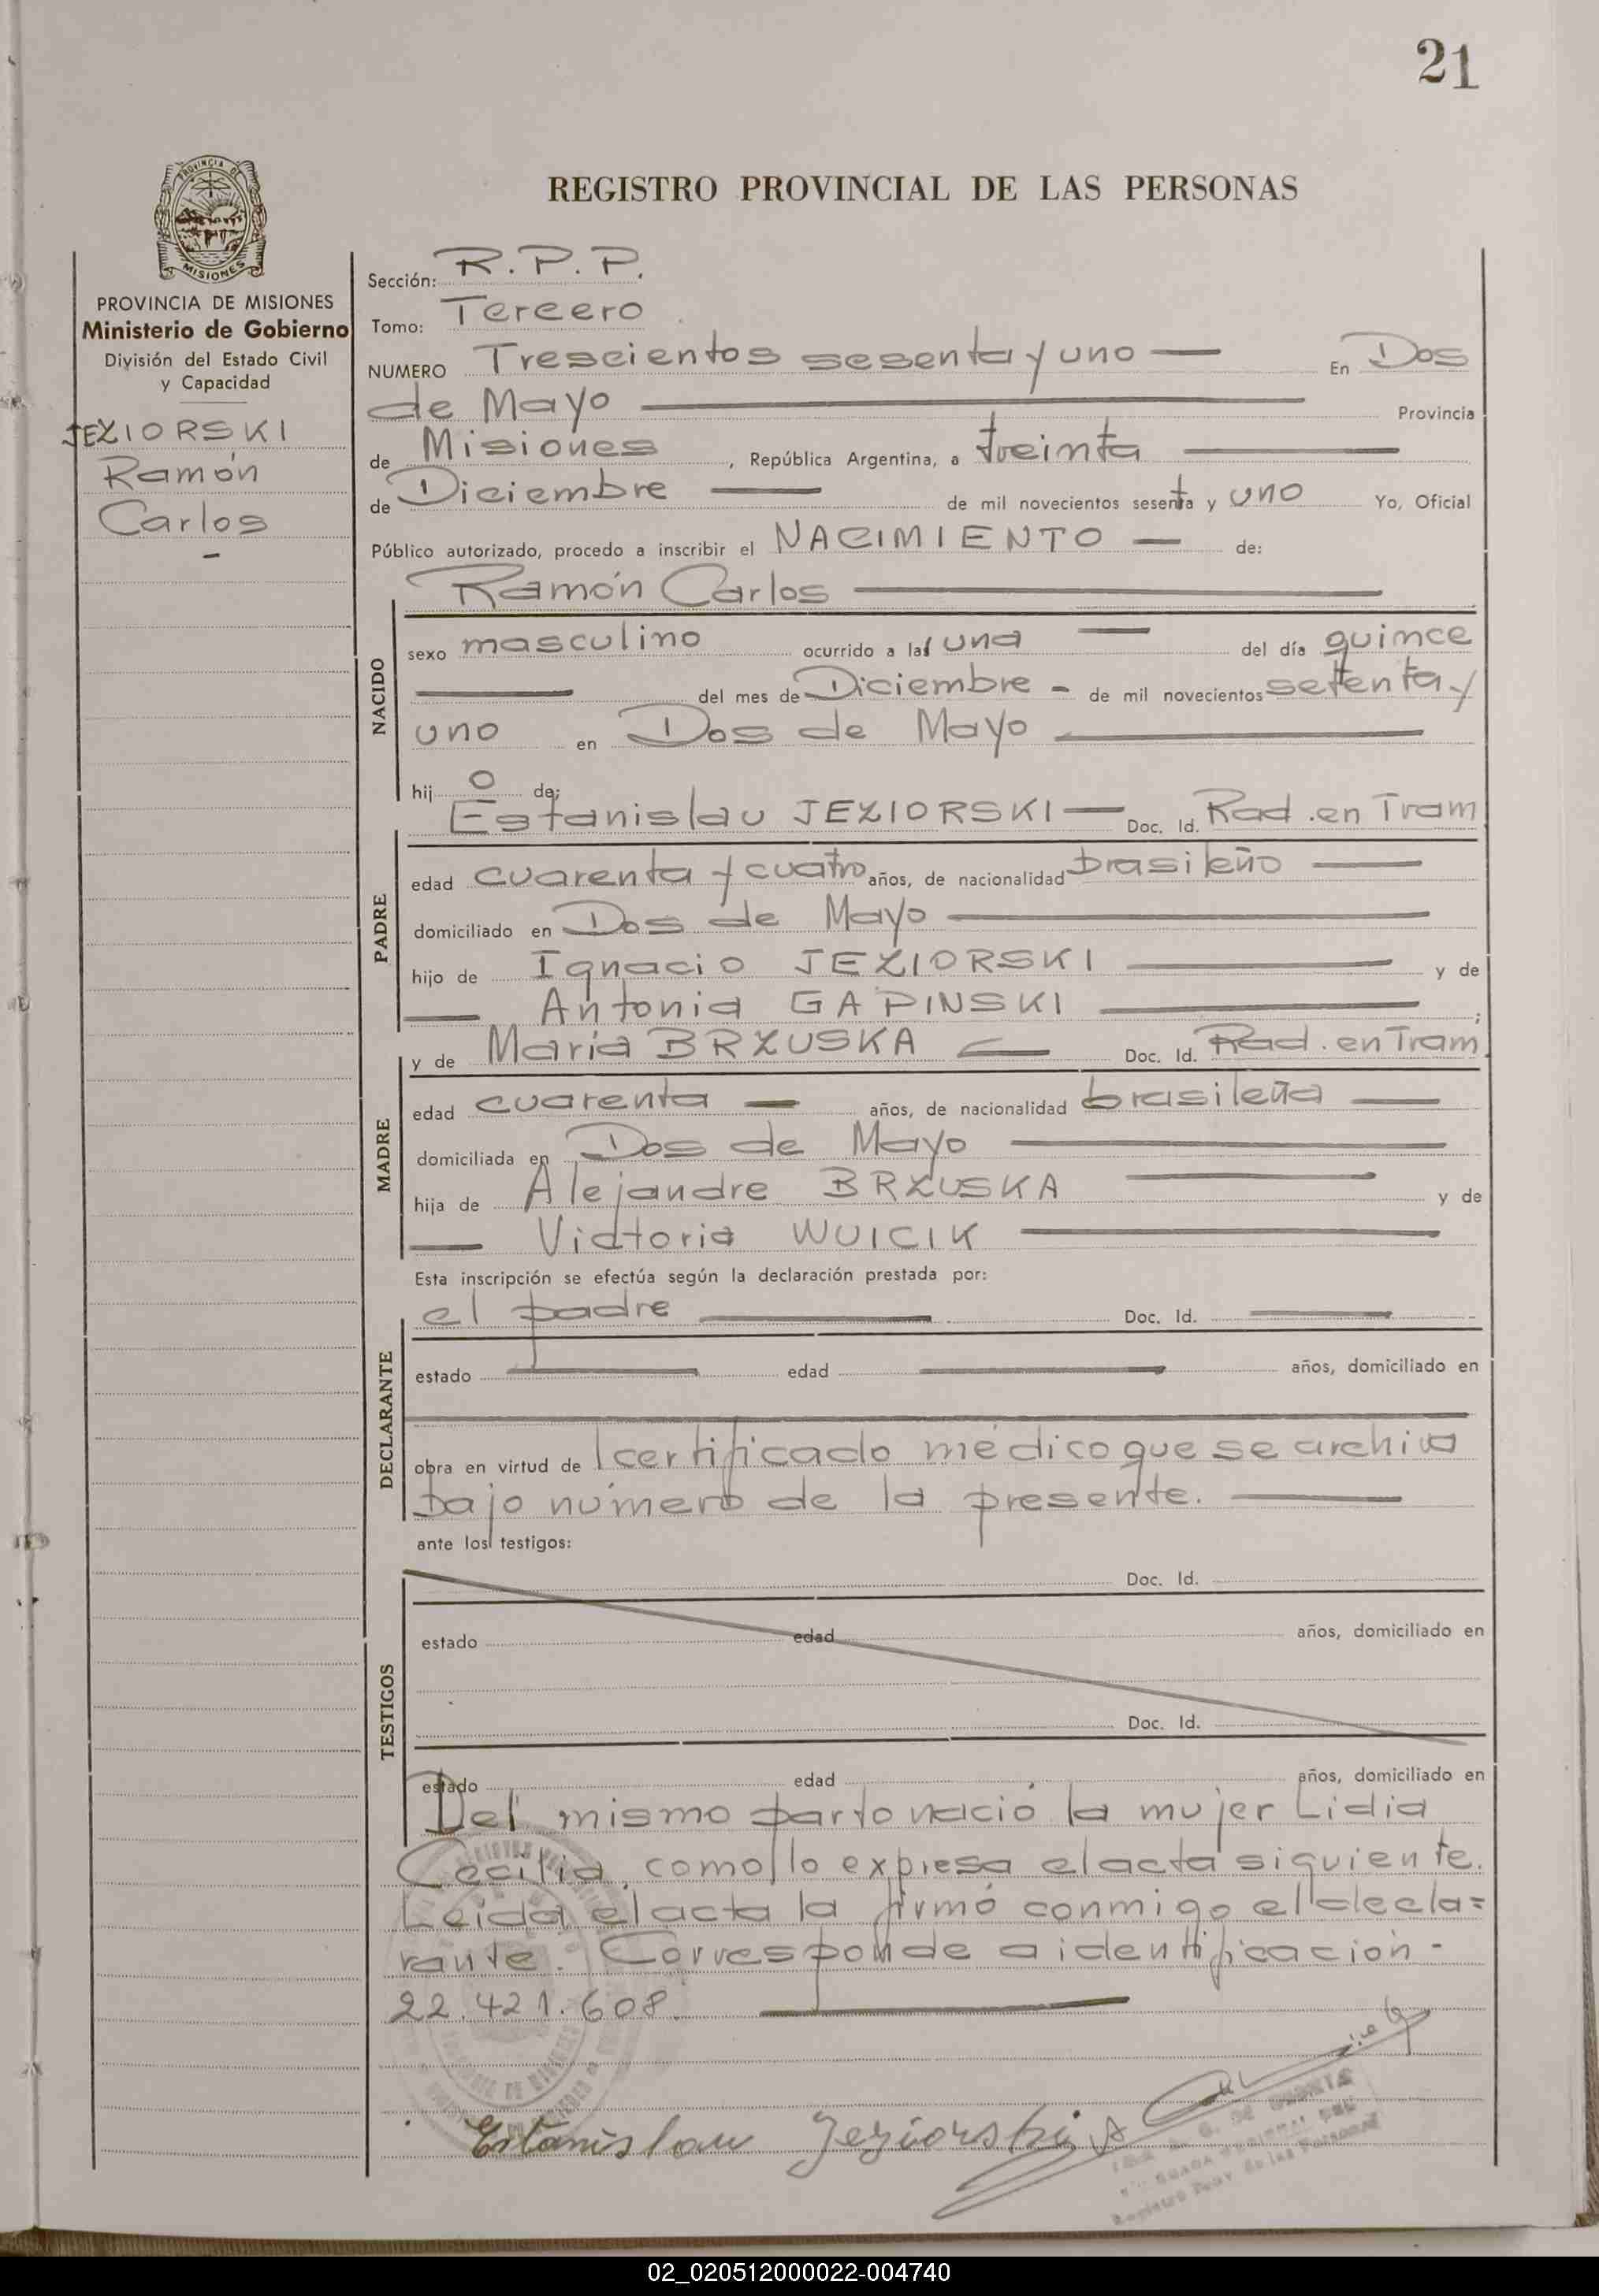 21
REGISTRO PROVINCIAL DE LAS PERSONAS
PROVINCIA DE
MISIONES
PROVINCIA DE MISIONES
Ministerio de Gobierno
División del Estado Civil
y Capacidad
JEZIORSKI
Ramón
Carlos
Sección: R.P.P.
Tomo: Tercero
NUMERO Trescientos sesenta y uno — En Dos
de Mayo — Provincia
de Misiones, República Argentina, a treinta —
de Diciembre — de mil novecientos sesenta y uno Yo, Oficial
Público autorizado, procedo a inscribir el NACIMIENTO — de:
Ramón Carlos —
NACIDO
sexo masculino ocurrido a las una — del día quince
— del mes de Diciembre - de mil novecientos setenta y
uno en Dos de Mayo —
hij o de:
Estanislau JEZIORSKI — Doc. Id. Rad. en Tram
PADRE
edad cuarenta y cuatro años, de nacionalidad brasileño —
domiciliado en Dos de Mayo —
hijo de Ignacio JEZIORSKI — y de
— Antonia GAPINSKI — ;
y de María BRZUSKA — Doc. Id. Rad. en Tram
MADRE
edad cuarenta — años, de nacionalidad brasileña —
domiciliada en Dos de Mayo —
hija de Alejandre BRZUSKA — y de
— Victoria WUICIK —
Esta inscripción se efectúa según la declaración prestada por:
el padre — Doc. Id. —
DECLARANTE
estado — edad — años, domiciliado en
obra en virtud de l certificado médico que se archiva
bajo número de la presente. —
ante los testigos:
TESTIGOS
Doc. Id.
estado edad años, domiciliado en
Doc. Id.
estado edad años, domiciliado en
Del mismo parto nació la mujer Lidia
Cecilia, como lo expresa el acta siguiente.
Leida el acta la firmó conmigo el decla=
rante. Corresponde a identificación -
22.421.608. —
Estanislau Jeziorski
Registro Prov. de las Personas
02_020512000022-004740